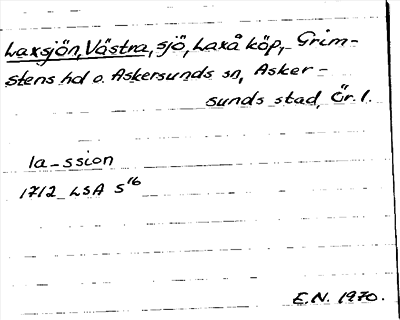 Laxsjön, Västra, sjö, Laxå köp, Grim-
stens hd o. Askersunds sn, Asker-
sunds stad, Ör. l.
la-ssion
1712 LSA S16
E.N. 1970.